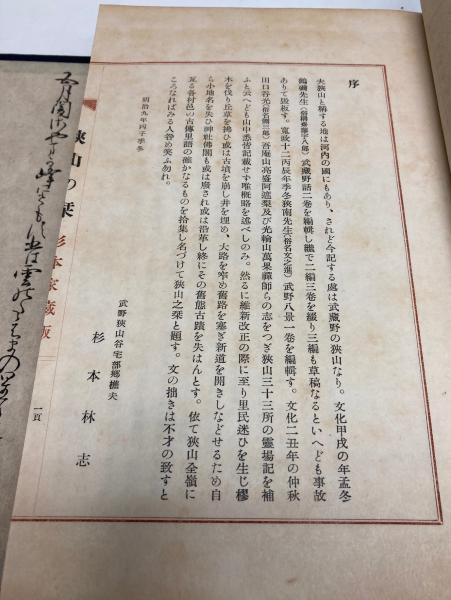 序
夫狹山と稱する地は河内の國にもあり、されど今記する處は武藏野の狹山なり。文化甲戌の年孟冬
鶴磯先生(俗稱齋藤宇八郎)武藏野話二卷を編輯し繼で二編三卷を綴り三編も草稿なるといへども事故
ありて毀板す。寬政十二丙辰年季冬狹南先生(俗名文之進)武野八景一卷を編輯す。文化二丑年の仲秋
田口谷光(俗名彌三郎)吾庵山亮盛阿遮梨及び光輪山萬杲禪師らの志をつぎ狹山三十三所の靈場記を補
ふと云へども山中悉皆記載せず唯概略を述べしのみ。然るに維新改正の際に至り里民迷ひを生じ樛
木を伐り丘草を掃ひ或は古墳を崩し井を埋め、大路を窄め舊路を塞ぎ新道を開きしなどせるため自
ら小地名を失ひ神社佛閣も或は廢され或は沿革し終にその舊態古蹟を失はんとす。依て狹山全嶺に
亙る各村邑の古傳里語の確かなるものを拾集し名づけて狹山之栞と題す。文の拙きは不才の致すと
ころなればみる人咎め笑ふ勿れ。
明治九年丙子季冬
武野狹山谷宅部鄕樵夫
杉本林志
狹山の栞
杉本家藏版
一頁